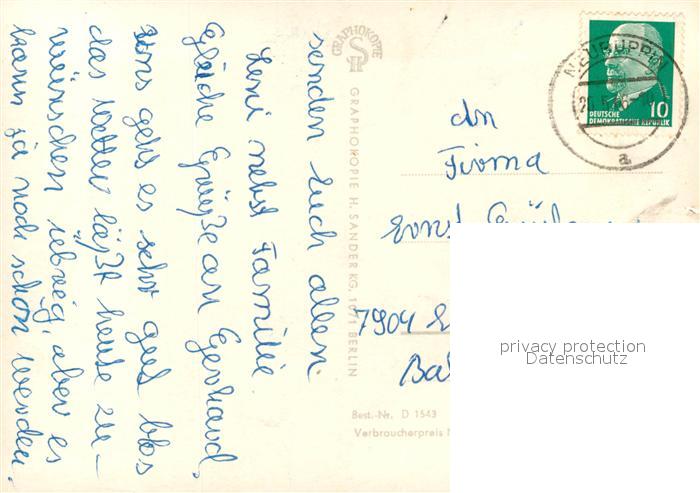 senden Euch allen
Leni nebst Familie.
Gleiche Grüße an Gerhard.
Uns geht es sehr gut blos
das Wetter läßt heute zu-
wünschen übrig, aber es
kann ja noch schön werden.
GRAPHOKOPIE
GRAPHOKOPIE H. SANDER KG, 1071 BERLIN
NEURUPPIN
a
10
DEUTSCHE
DEMOKRATISCHE REPUBLIK
An
Firma
Ernst
7904
Best.-Nr. D 1543
Verbraucherpreis
privacy protection
Datenschutz